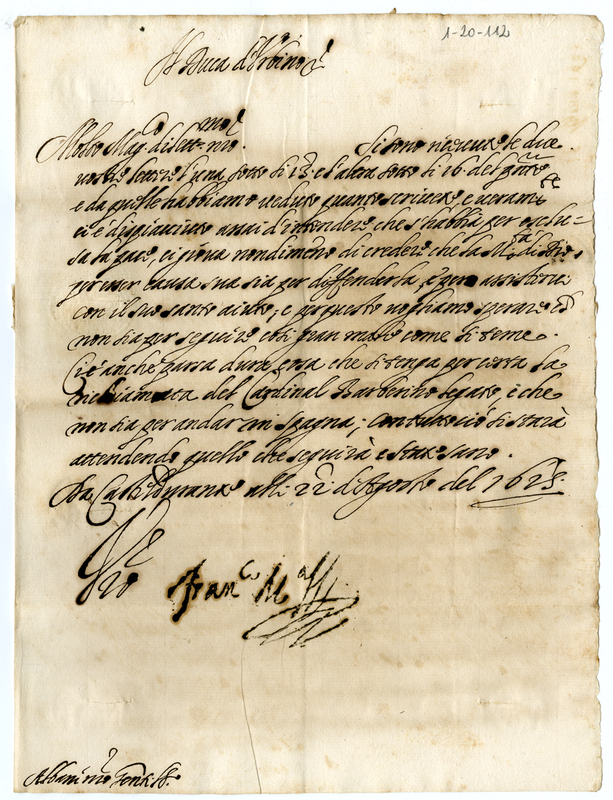 1-20-112
Il Duca d'Urbino
Molto Mag.co dilett.mo nro. Si sono ricevute le due
vostre lettere l'una sotto di 13. e l'altra sotto di 16. del pnte
e da quelle habbiamo veduto quanto scrivete, e veram.te
ci è dispiaciuto assai d'intendere che s'habbia per esclu-
sa la pace, ci giova nondimeno di credere che la M.tà di Dio,
per esser causa sua sia per diffenderla, e per assisterci
con il suo santo aiuto, e per questo vogliamo sperare
non sia per seguire così gran male come si teme.
Ci è anche parsa dura cosa che si tenga per certa la
richiamata del Cardinal Barberino legato, e che
non sia per andar in Spagna, con tutto ciò si starà
attendendo quello che seguirà e state sano.
Da Casteldurante alli 22. di Agosto del 1625.
Fran.co M.a
Albani